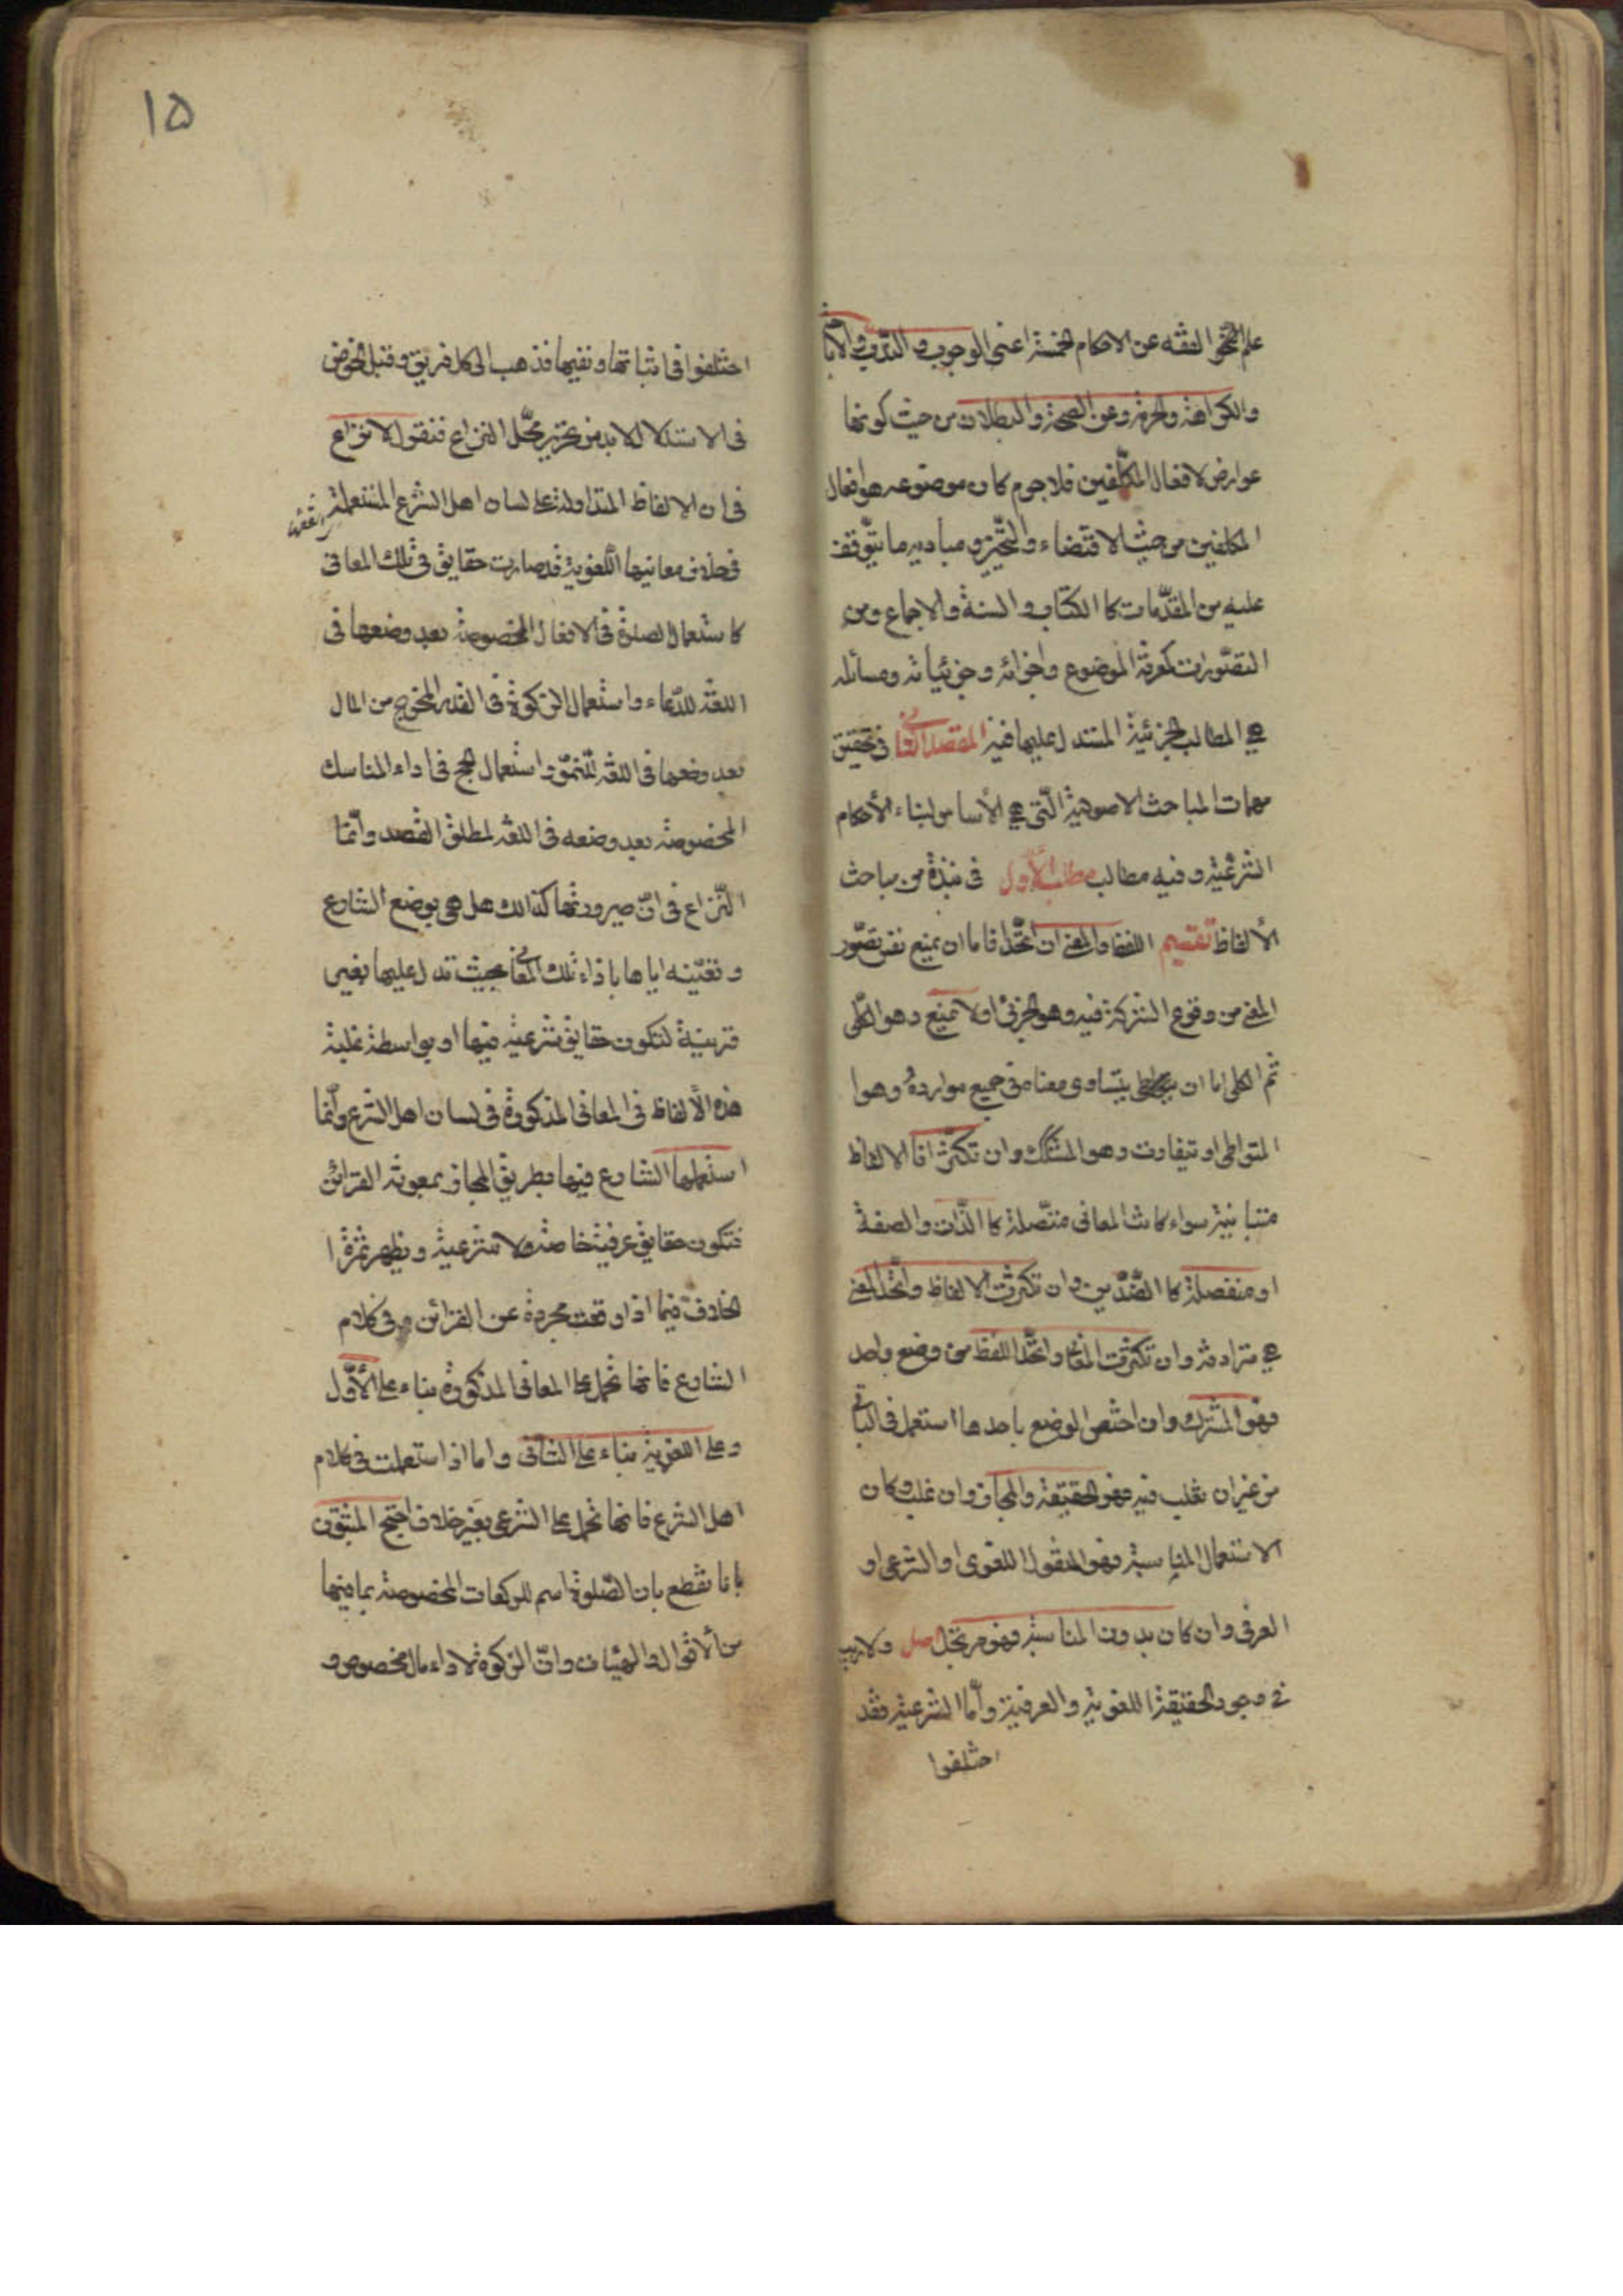 علم الفقه عن الاحكام الخمسة اعنى الوجوب والندب والاباحة
والكراهة والحرمة وعن الصحة والبطلان من حيث كونها
عوارض لافعال المكلّفين فلاجرم كان موضوعه هو افعال
المكلفين من حيث الاقتضاء والتخيير ومباديه ما يتوقف
عليه من المقدّمات كا الكتاب والسنة والاجماع ومن
التصّورات كمعرفة الموضوع واجزائه وجزئياته ومسائله
هى المطالب الجزئية المستدل عليها فيه المقصد الثانى فى تحقيق
مهمات المباحث الاصولية الّتى هى الأساس لبناء الأحكام
الشرعية وفيه مطالب مطلب الأول فى نبذة من مباحث
الألفاظ تقسيم اللفظ والمعنى ان اتّحدا فاما ان يمنع نفس تصّور
المعنى من وقوع الشركة فيه وهو الجزئى اولا يمنع وهو الكلّى
ثم الكلى اما ان يتساوى معناه فى جميع موارده وهوا
المتواطى او يتفاوت وهو المشكك وان تكثّرا فا الالفاظ
متباينة سواء كانت المعانى متّصلة كا الذّات والصفة
او منفصلة كا الضّدّين وان تكثرت الالفاظ واتّحد المعنى
هى مترادفة وان تكثرت المعانى واتّحد اللفظ من وضع واحد
فهو المشترك وان اختص الوضع باحدها استعمل فى الباقى
من غير ان يغلب فيه فهو الحقيقة والمجاز وان غلب وكان
الاستعمال المناسبة فهو المنقول اللغوى او الشرعى او
العرفى وان كان بدون المناسبة فهو مرتجل اصل ولا ريب
فى وجود الحقيقة اللغوية والعرفية وأما الشرعية فقد
اختلفوا
۱۵
اختلفوا فى اثباتها ونفيها فذهب الى كل فريق وقبل الخوض
فى الاستدلال لابد من تحرير محّل النزاع فنقول لا نزاع
فى ان الالفاظ المتداولة على لسان اهل الشرع المستعملة
فى خلاف معانيها اللّغوية قد صارت حقايق فى تلك المعانى
كاستعمال الصلوة فى الافعال المخصوصة بعد وضعها فى
اللغة للدّعاء واستعمال الزكوة فى القدر المخرج من المال
بعد وضعها فى اللغة للنمّو واستعمال الحج فى اداء المناسك
المخصوصة بعد وضعه فى اللغة لمطلق القصد وانّما
النّزاع فى انّ صيرورتها كذالك هل هى بوضع الشارع
وتعيّنه اياها باذاء تلك المعانى بحيث تدل عليها بغير
قرينة لتكون حقايق شرعية فيها او بواسطة غلبة
هذه الألفاظ فى المعانى المذكورة فى لسان اهل الشرع وانّما
استعملها الشارع فيها بطريق المجاز بمعونة القرائن
فتكون حقايق عرفية خاصة ولا شرعية ويظهر ثمرة ا
لخلاف فيما اذا وقعت مجردة عن القرائن فى كلام
الشارع فانها تحمل على المعانى المذكورة بناء على الأوّل
وعلى اللغوية بناء على الثانى واما اذا ستعملت فى كلام
اهل الشرع فانها تحمل على الشرعى بغير خلاف احتج المثبتون
بانا نقطع بان الصّلوة اسم للركعات المخصوصة بما فيها
من الأقوال والهيئات وانّ الزكوة لاداء مال مخصوص و